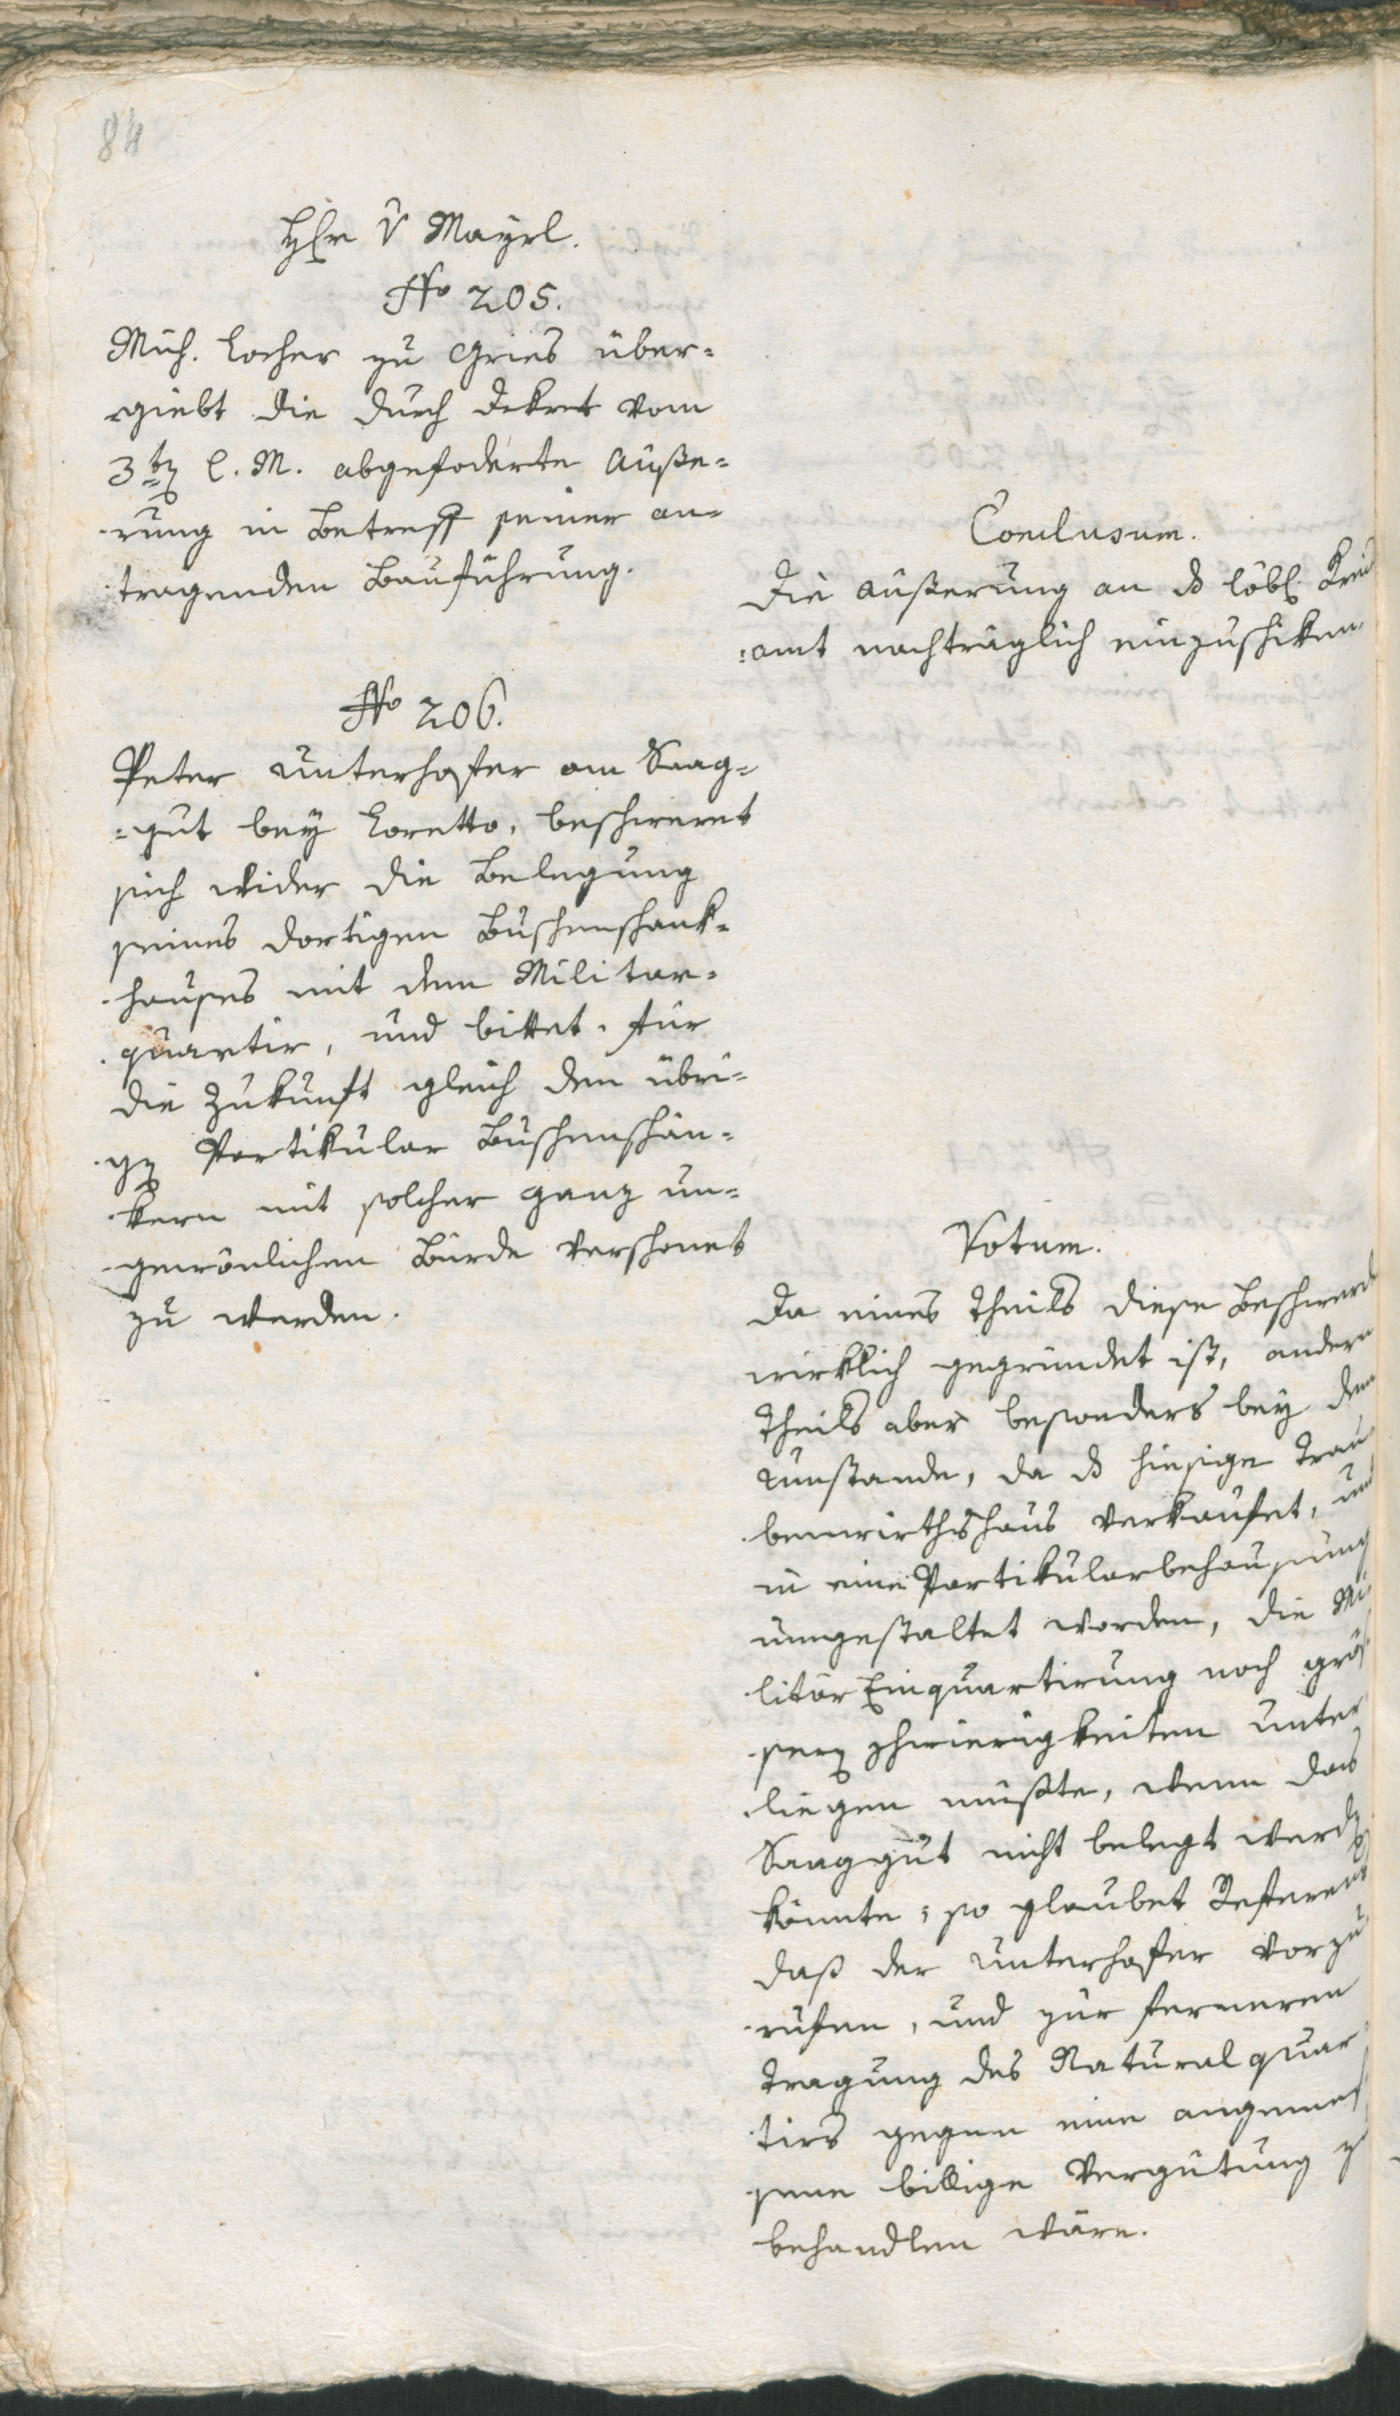 84
Hr v Mayrl.
No 205.
Mich. Locher zu Gries über-
giebt die durch Dekret vom
3ten l. M. abgefoderte Äuße-
rung in Betreff seiner an-
tragenden Bauführung.
Conclusum.
Die Äußerung an d löbl. Kreis
amt nachträglich einzuschiken.
No 206.
Peter Unterhofer am Saag-
gut bey Loretto, beschweret
sich wider die Belegung
seines dortigen Buschenschank-
hauses mit dem Militar-
quartir, und bittet für
die Zukunft gleich den übri-
gen Partikular Buschenschän-
kern mit solcher ganz un-
gewönlichen Bürde verschonet
zu werden.
Votum.
Da eines Theils diese Beschwerde
wirklich gegründet ist, andern
Theils aber besonders bey dem
Umstande, da d hiesige Trau
benwirthshaus verkaufet, und
in eine Partikularbehausung
umgestaltet worden, die Mi
litär Einquartirung noch grös
sern Schwierigkeiten unter
liegen müßte, wenn das
Saaggut nicht belegt werden
könnte; so glaubet Referent
daß der Unterhofer vorzu
rufen, und zur ferneren
Tragung des Naturalquar
tirs gegen eine angemes
sene billige Vergütung z
behandlen wäre.